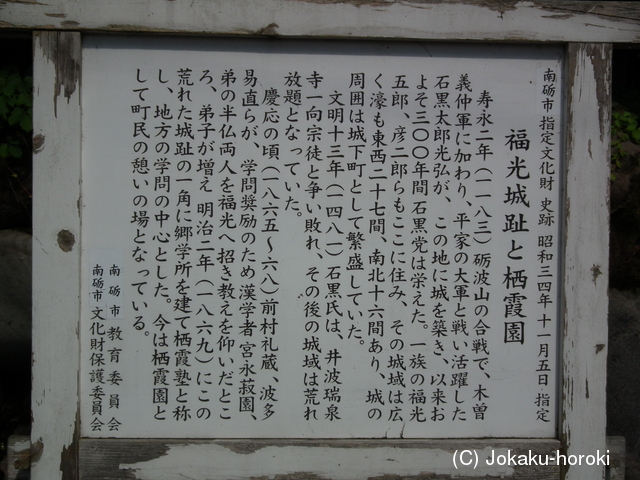 南砺市指定文化財 史跡 昭和三四年十一月五日 指定
福光城趾と栖霞園
寿永二年(一一八三)砺波山の合戦で、木曽
義仲軍に加わり、平家の大軍と戦い活躍した
石黒太郎光弘が、この地に城を築き、以来お
よそ三〇〇年間石黒党は栄えた。一族の福光
五郎、彦二郎らもここに住み、その城域は広
く濠も東西二十七間、南北十六間あり、城の
周囲は城下町として繁盛していた。
文明十三年(一四八一)石黒氏は、井波瑞泉
寺一向宗徒と争い敗れ、その後の城域は荒れ
放題となっていた。
慶応の頃(一八六五~六八)前村礼蔵、波多
易直らが、学問奨励のため漢学者宮永菽園、
弟の半仏両人を福光へ招き教えを仰いだとこ
ろ、弟子が増え明治二年(一八六九)にこの
荒れた城趾の一角に郷学所を建て栖霞塾と称
し、地方の学問の中心とした。今は栖霞園と
して町民の憩いの場となっている。
南砺市教育委員会
南砺市文化財保護委員会
(C) Jokaku-horoki